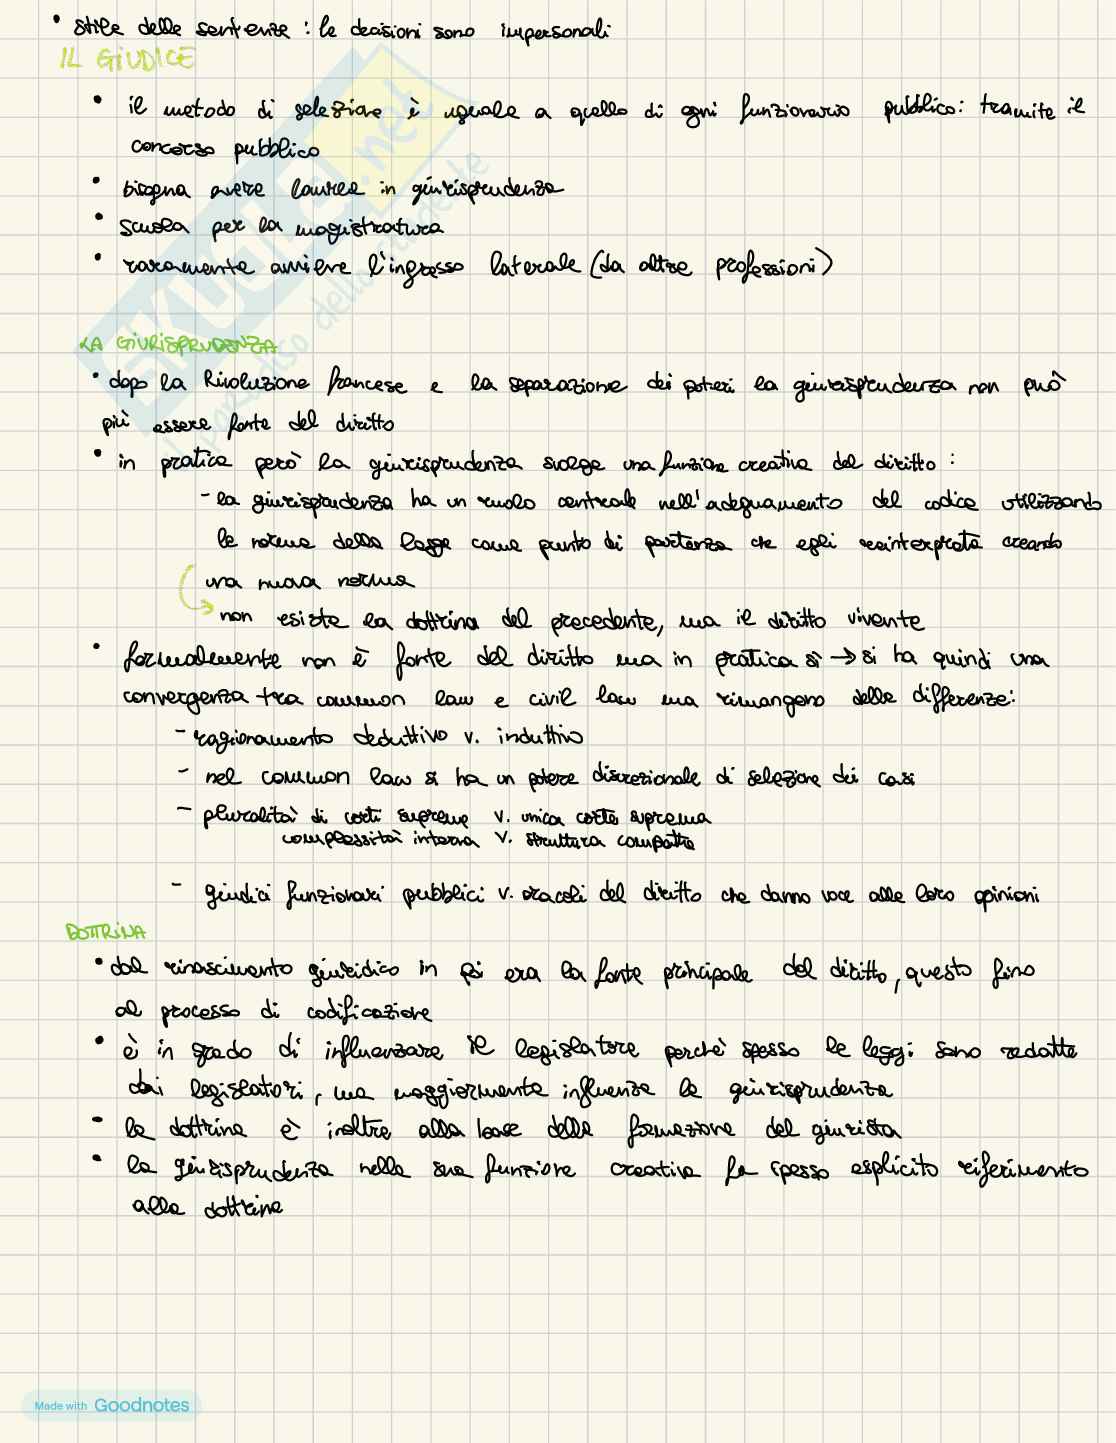 • stile delle sentenze : le decisioni sono impersonali
IL GIUDICE
• il metodo di selezione è uguale a quello di ogni funzionario pubblico: tramite il
concorso pubblico
• bisogna avere laurea in giurisprudenza
• scuola per la magistratura
• raramente avviene l'ingresso laterale (da altre professioni)
LA GIURISPRUDENZA
• dopo la Rivoluzione francese e la separazione dei poteri la giurisprudenza non può
più essere fonte del diritto
• in pratica però la giurisprudenza svolge una funzione creativa del diritto :
- la giurisprudenza ha un ruolo centrale nell'adeguamento del codice utilizzando
le norme della legge come punto di partenza che egli reinterpreta creando
una nuova norma
non esiste la dottrina del precedente, ma il diritto vivente
• formalmente non è fonte del diritto ma in pratica sì → si ha quindi una
convergenza tra common law e civil law ma rimangono delle differenze:
- ragionamento deduttivo v. induttivo
- nel common law si ha un potere discrezionale di selezione dei casi
- pluralità di corti supreme v. unica corte suprema
complessità interna v. struttura compatta
- giudici funzionari pubblici v. oracoli del diritto che danno voce alle loro opinioni
DOTTRINA
• dal rinascimento giuridico in poi era la fonte principale del diritto, questo fino
al processo di codificazione
• è in grado di influenzare il legislatore perchè spesso le leggi sono redatte
dai legislatori, ma maggiormente influenza la giurisprudenza
• la dottrina è inoltre alla base della formazione del giurista
• la giurisprudenza nella sua funzione creativa fa spesso esplicito riferimento
alla dottrina
SKUOLA.net
il paradiso dello studente
Made with Goodnotes